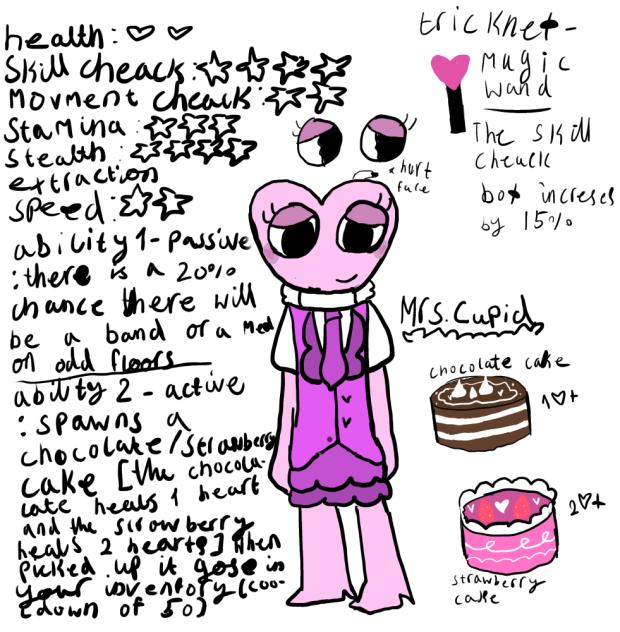 health: ♡ ♡
Skill cheack: ☆ ☆ ☆ ☆
Movment cheack: ☆ ☆
Stamina: ☆☆☆
Stealth: ☆☆☆☆
extraction
speed: ☆☆
ability 1 - passive
: there is a 20%
chance there will
be a band or a Med
on odd floors
ability 2 - active
: spawns a
chocolate/strawberry
cake [the chocola-
cate heals 1 heart
and the strowberry
heals 2 hearts] when
picked up it gose in
your inventory (coo-
ldown of 50)
hurt
face
tricknet-
Magic
wand
The skill
cheack
box increses
by 15%
Mrs. Cupid
chocolate cake
1♡+
2♡+
strawberry
cake